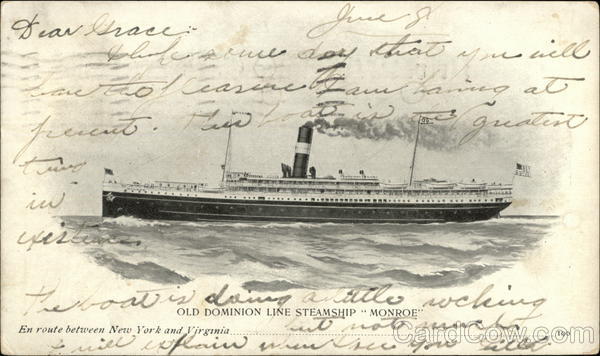 June 8
Dear Grace:
I hope some day that you will
have the pleasure I am having at
present. This boat is the greatest
thing
in
existence.
The boat is doing a little rocking
OLD DOMINION LINE STEAMSHIP "MONROE"
but not much.
En route between New York and Virginia
190
I will explain when I see you
CardCow.com